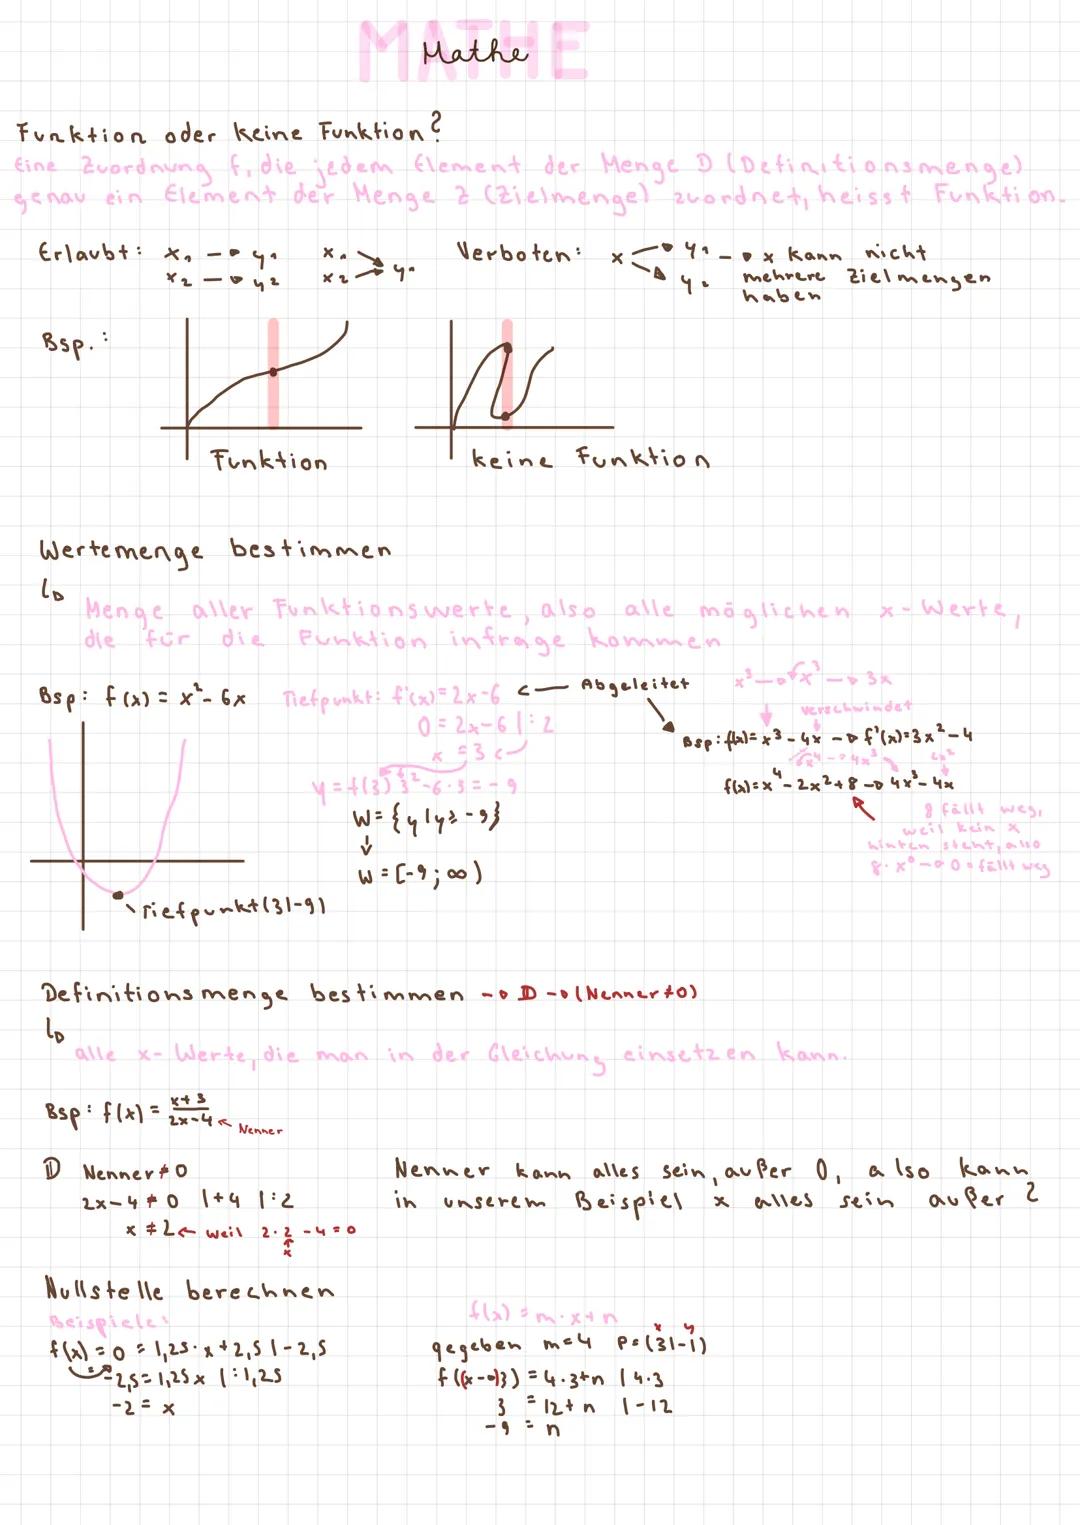 MATHE
Mathe
Funktion oder keine Funktion?
Eine Zuordnung f, die jedem Element der Menge D (Definitionsmenge)
genau ein Element der Menge Z (Zielmenge) zuordnet, heisst Funktion.
Erlaubt: x₁ → y₁ x₁ Verboten: x y₁ → x kann nicht
x₂ → y₂ x₂ y₁ y₂ mehrere Zielmengen
haben
Bsp.:
Funktion keine Funktion
Wertemenge bestimmen
Menge aller Funktionswerte, also alle möglichen x-Werte,
die für die Funktion infrage kommen
Bsp: f(x) = x² - 6x Tiefpunkt: f'(x) = 2x-6 ← Abgeleitet x³ → x³ → 3x
0 = 2x-6 |:2 verschwindet
x = 3 Bsp: f(x) = x³ - 4x → f'(x) = 3x² - 4
y = f(3) 3² - 6·3 = -9 x⁴ → 4x³
f(x) = x⁴ - 2x² + 8 → 4x³ - 4x
W = {y|y≥-9} 8 fällt weg,
weil kein x
W = [-9; ∞) hinten steht, also
8·x⁰ → 0 = fällt weg
Tiefpunkt (3|-9)
Definitionsmenge bestimmen → D → (Nenner≠0)
alle x-Werte, die man in der Gleichung einsetzen kann.
Bsp: f(x) = x+3/2x-4 ← Nenner
D Nenner ≠ 0 Nenner kann alles sein, außer 0, also kann
2x-4 ≠ 0 |+4 |:2 in unserem Beispiel x alles sein außer 2
x ≠ 2 ← weil 2·2 - 4 = 0
x
Nullstelle berechnen
Beispiele: f(x) = m·x+n
x y
f(x) = 0 = 1,25·x + 2,5 |-2,5 gegeben m=4 P=(3|-1)
-2,5 = 1,25x |:1,25 = 4·3+n |4·3
-2 = x 3 = 12+n |-12
-9 = n